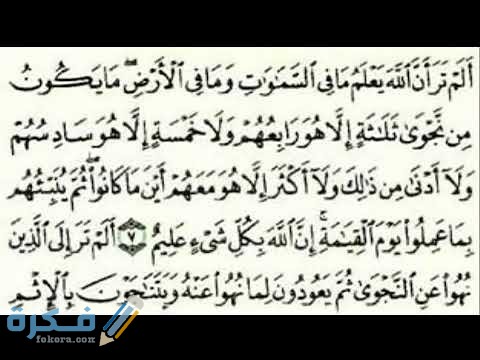 أَلَمْ تَرَ أَنَّ ٱللَّهَ يَعْلَمُ مَا فِى ٱلسَّمَٰوَٰتِ وَمَا فِى ٱلْأَرْضِۖ مَا يَكُونُ
مِن نَّجْوَىٰ ثَلَٰثَةٍ إِلَّا هُوَ رَابِعُهُمْ وَلَا خَمْسَةٍ إِلَّا هُوَ سَادِسُهُمْ
وَلَآ أَدْنَىٰ مِن ذَٰلِكَ وَلَآ أَكْثَرَ إِلَّا هُوَ مَعَهُمْ أَيْنَ مَا كَانُوا۟ۖ ثُمَّ يُنَبِّئُهُم
بِمَا عَمِلُوا۟ يَوْمَ ٱلْقِيَٰمَةِۚ إِنَّ ٱللَّهَ بِكُلِّ شَىْءٍ عَلِيمٌ ٧ أَلَمْ تَرَ إِلَى ٱلَّذِينَ
نُهُوا۟ عَنِ ٱلنَّجْوَىٰ ثُمَّ يَعُودُونَ لِمَا نُهُوا۟ عَنْهُ وَيَتَنَٰجَوْنَ بِٱلْإِثْمِ
فكرة
fokora.com